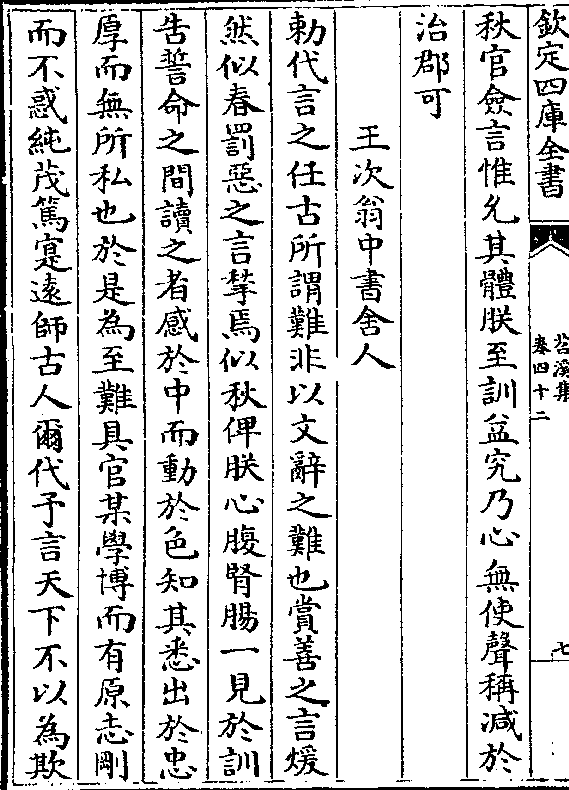 欽定四庫全書
苕溪集
卷四十二
七
秋官僉言惟允其體朕至訓益究乃心無使聲稱減於
治郡可
王次翁中書舍人
勅代言之任古所謂難非以文辭之難也賞善之言煖
然似春罰惡之言揫焉似秋俾朕心腹腎腸一見於訓
告誓命之間讀之者感於中而動於色知其悉出於忠
厚而無所私也於是為至難具官某學博而有原志剛
而不惑純茂篤寔遠師古人爾代予言天下不以為欺